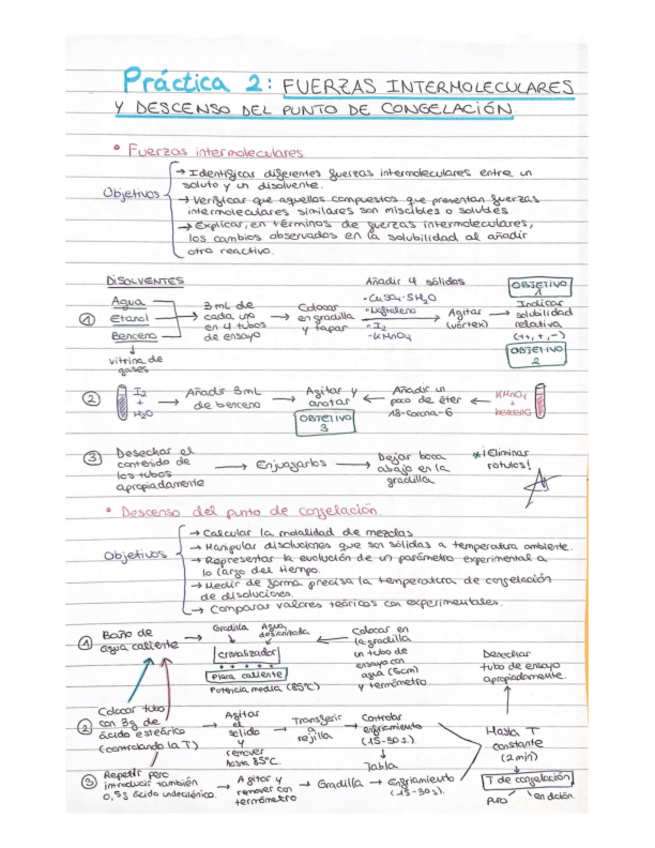 Práctica 2: FUERZAS INTERMOLECULARES
Y DESCENSO DEL PUNTO DE CONGELACIÓN
• Fuerzas intermoleculares
Objetivos
→ Identificar diferentes fuerzas intermoleculares entre un
soluto y un disolvente.
→ Verificar que aquellos compuestos que presentan fuerzas
intermoleculares similares son miscibles o solubles
→ Explicar, en términos de fuerzas intermoleculares,
los cambios observados en la solubilidad al añadir
otro reactivo.
DISOLVENTES
① Agua
Etanol
Benceno
↓
vitrina de
gases
→ 3 mL de
cada uno
en 4 tubos
de ensayo
→ Colocar
en gradilla
y tapar
Añadir 4 sólidos
• CuSO4·5H2O
• Naftaleno
• I2
• KMnO4
→ Agitar
(vórtex)
→ OBJETIVO
1
Indicar
solubilidad
relativa
(++, +, -)
OBJETIVO
2
② I2
+
H2O
→ Añadir 3mL
de benceno
→ Agitar y
anotar
OBJETIVO
3
← Añadir un
poco de éter
18-corona-6
← KMnO4
+
benceno
③ Desechar el
contenido de
los tubos
apropiadamente
→ Enjuagarlos
→ Dejar boca
abajo en la
gradilla
* ¡Eliminar
rótulos!
• Descenso del punto de congelación.
Objetivos
→ Calcular la molalidad de mezclas
→ Manipular disoluciones que son sólidas a temperatura ambiente.
→ Representar la evolución de un parámetro experimental a
lo largo del tiempo.
→ Medir de forma precisa la temperatura de congelación
de disoluciones.
→ Comparar valores teóricos con experimentales.
① Baño de
agua caliente
→ Gradilla
Agua
desionizada
cristalizador
Placa caliente
Potencia media (85ºC)
← Colocar en
la gradilla
un tubo de
ensayo con
agua (5cm)
y termómetro
Desechar
tubo de ensayo
apropiadamente.
② Colocar tubo
con 8g de
ácido esteárico
(controlando la T)
→ Agitar
el
sólido
y
remover
hasta 85ºC.
→ Transferir
a
rejilla
→ Controlar
enfriamiento
(15-30s.)
↓
Tabla
Hasta T
constante
(2min)
↓
T de congelación
puro
en dción.
③ Repetir pero
introducir también
0,5g ácido undecilénico.
→ Agitar y
remover con
termómetro
→ Gradilla
→ Enfriamiento
(15-30s.)